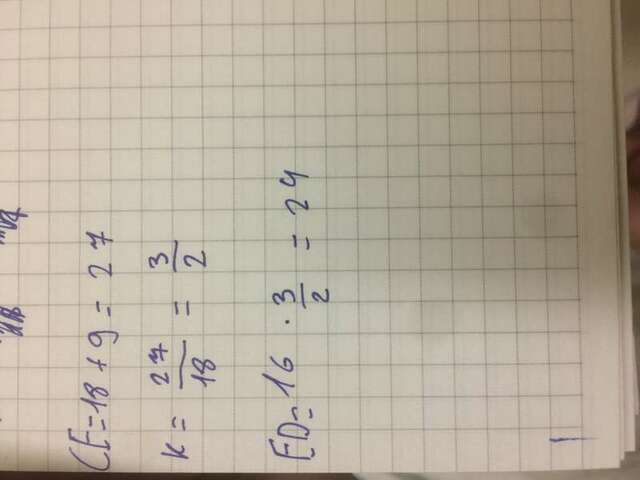 CE=18+9=27
K=27/18=3/2
ED=16·3/2=24